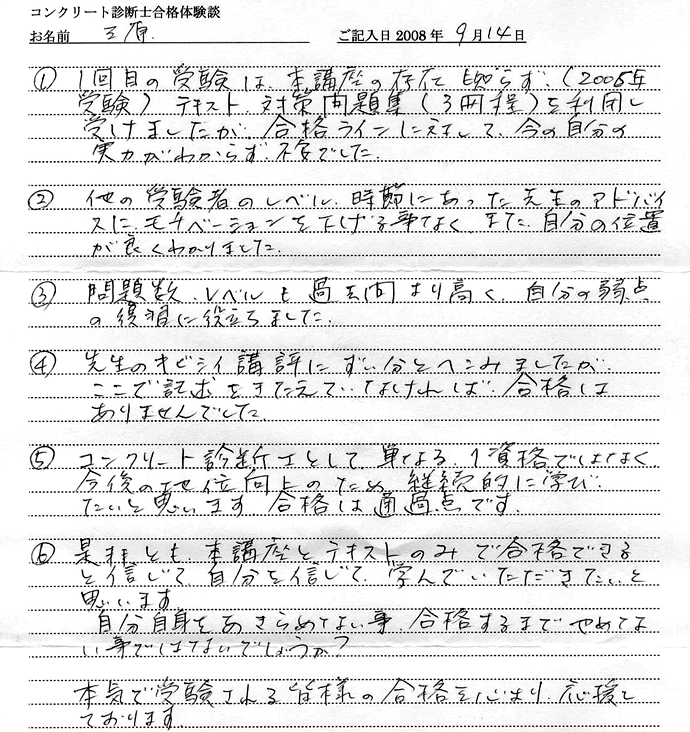 コンクリート診断士合格体験談
お名前 三原 ご記入日 2008年 9月14日
① 1回目の受験は、本講座の存在も知らず、(2005年
受験) テキスト 対策問題集(3冊程)を利用し
受けましたが、合格ラインに対して、今の自分の
実力がわからず、不安でした。
② 他の受験者のレベル、時節にあった先生のアドバイ
スに、モチベーションを下げる事なく、また、自分の位置
が良くわかりました。
③ 問題数、レベルも過去問より高く、自分の弱点
の復習に役立ちました。
④ 先生のキビシイ講評に ずい分とヘこみましたが、
ここで記述をきたえていなければ、合格は
ありませんでした
⑤ コンクリート診断士として 単なる、1資格ではなく、
今後の地位向上のため 継続的に学び
たいと思います 合格は通過点です。
⑥ 是非とも、本講座とテキストのみで合格できる
と信じて 自分を信じて、学んでいただきたいと
思います
自分自身をあきらめてない事、合格するまでやめてな
い事ではないでしょうか?
本気で受験される皆様の合格を心より、応援し
ております